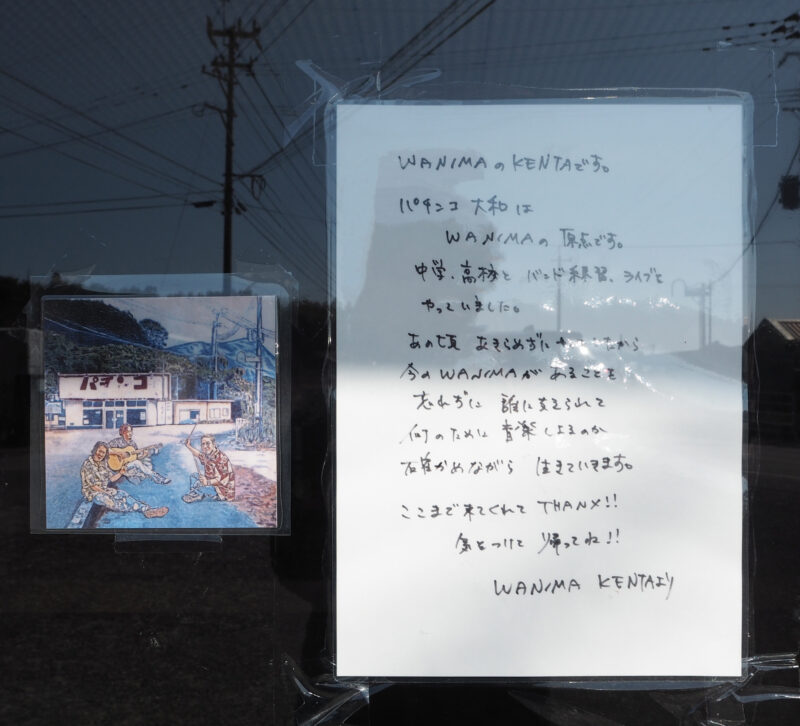 WANIMAのKENTAです。
パチンコ 大和は
WANIMAの 原点です。
中学、高校と バンド練習、ライブを
やっていました。
あの頃 あきらめずに やっていたから
今のWANIMAがあることを
忘れずに 誰に支えられて
何のために 音楽しよるのか
確かめながら 生きていきます。
ここまで来てくれて THANX!!
気をつけて 帰ってね!!
WANIMA KENTAより
パチンコ